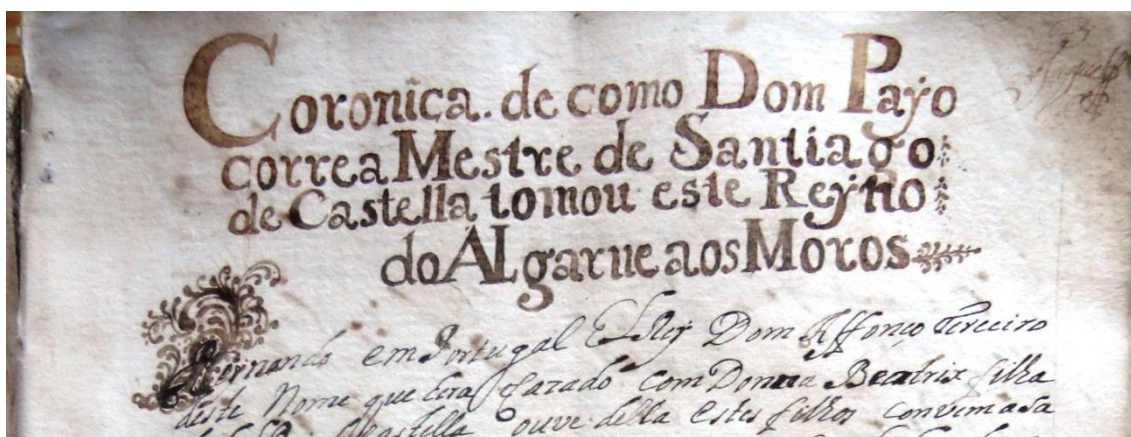 Coronica. de como Dom Payo
correa Mestre de Santiago
de Castella tomou este Reyno
do ALgarue aos Moros
Reynando em Portugal ElRey Dom Affonço Terceiro
deste Nome que Era Cazado Com Donna Beatrix filha
Castella ouve della estes filhos convem a sa